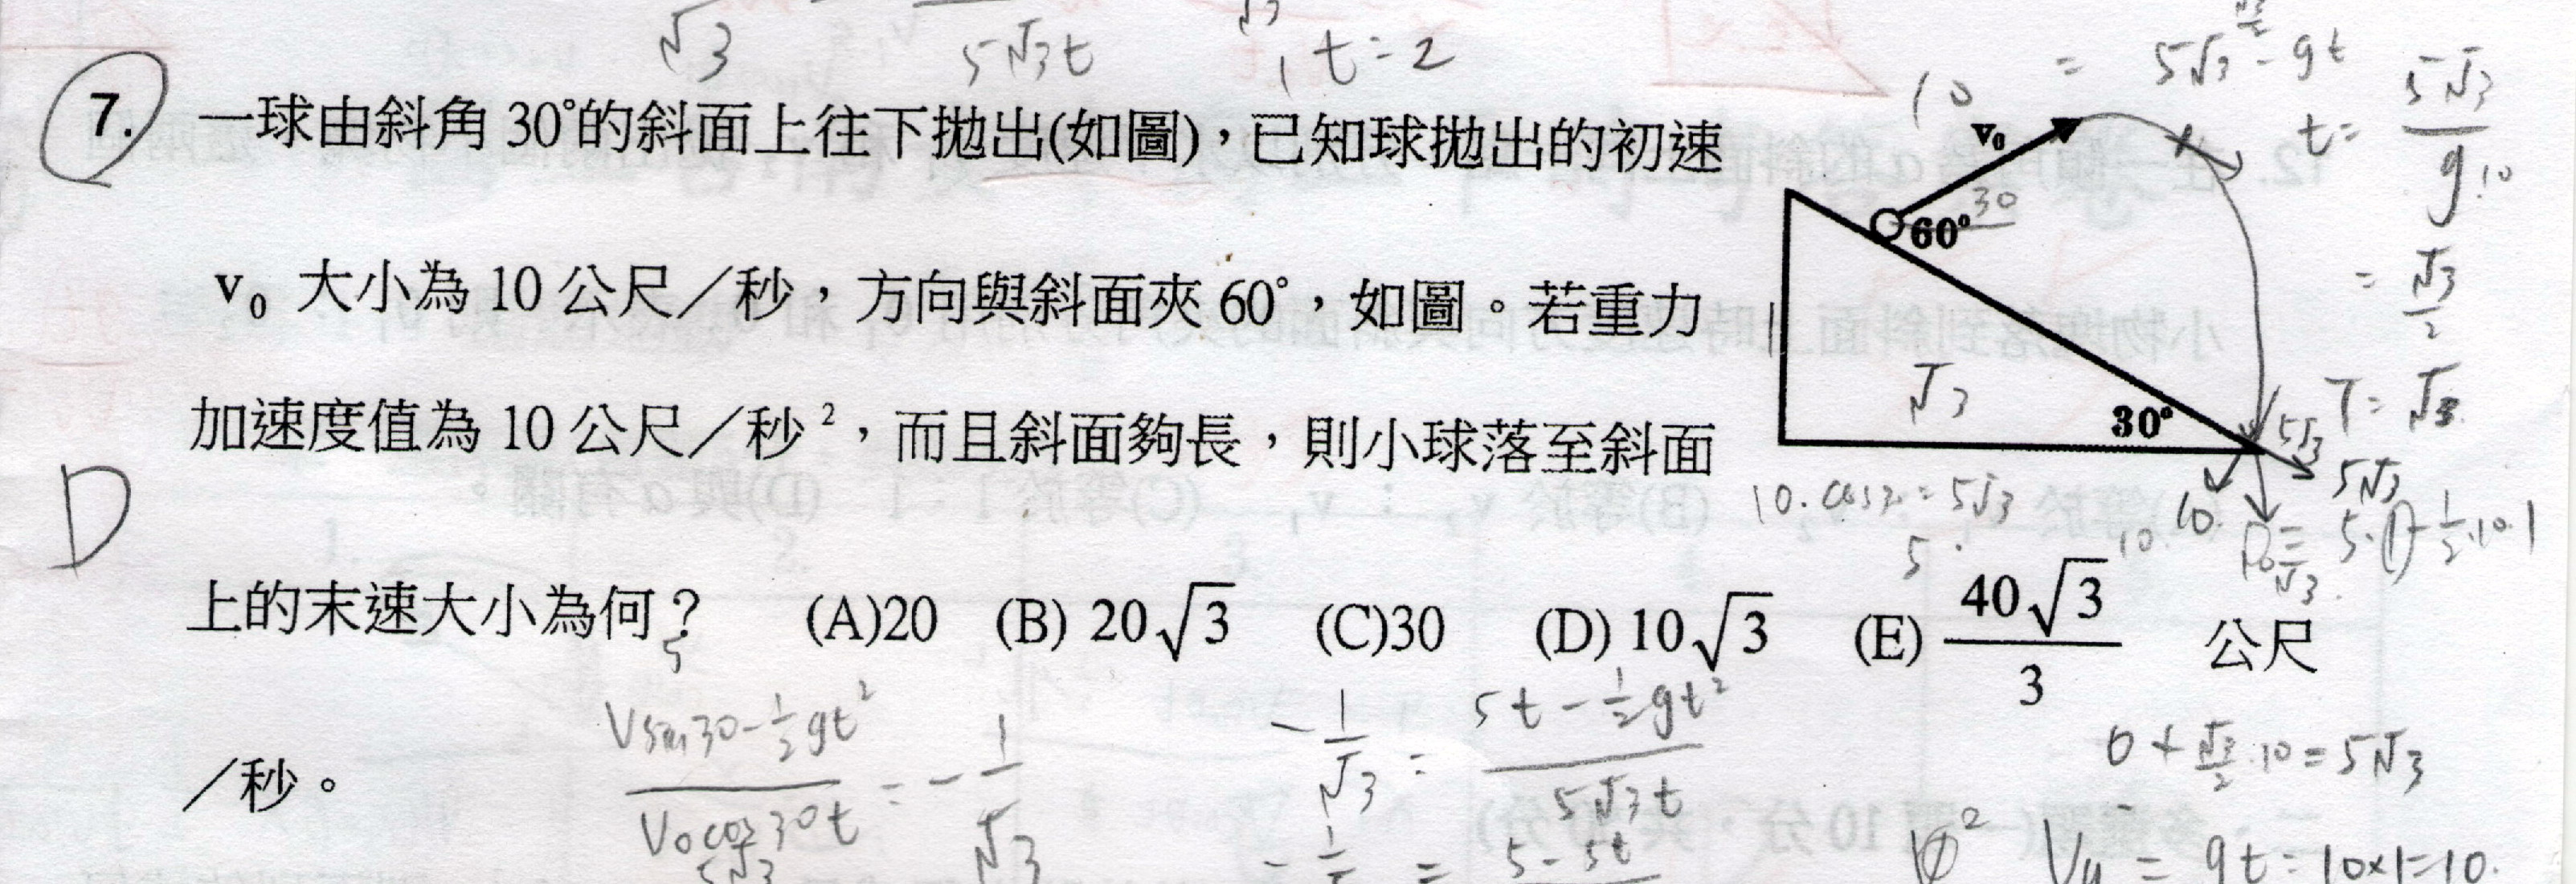 √3 5√3t t=2
= 5√3 - gt
10
t= 5√3/g 10
7. 一球由斜角 30°的斜面上往下拋出(如圖)，已知球拋出的初速
v₀ 大小為 10 公尺／秒，方向與斜面夾 60°，如圖。若重力
加速度值為 10 公尺／秒²，而且斜面夠長，則小球落至斜面
上的末速大小為何？ (A)20 (B) 20√3 (C)30 (D) 10√3 (E) 40√3/3 公尺
／秒。
D
v₀
60° 30
1 √3
30°
= √3/2
T= √3
5√3
5√3
10·cos30=5√3
5
10
5·1-1/2·10·1
(Vsin30-1/2gt²)/(V0cos30t) = -1/√3
5√3
-1/√3 = (5t-1/2gt²)/(5√3t)
= 5-5t
0+√3/2·10=5√3
Vy = gt=10×1=10.